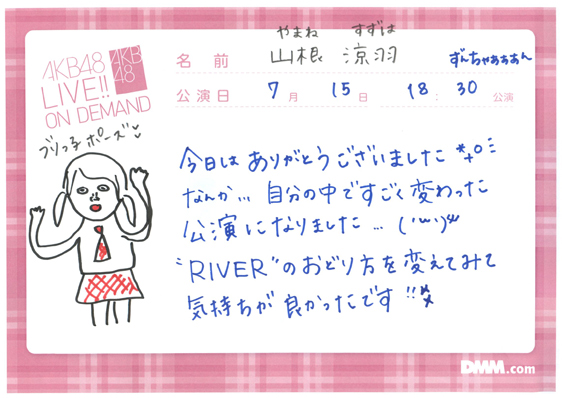 AKB48
LIVE!!
ON DEMAND
AKB
48
やまね すずは
名前 山根 涼羽 ずんちゃぁぁぁん
公演日 7月 15日 18:30公演
ブリっ子ポーズ♡
今日はありがとうございました
なんか…自分の中ですごく変わった
公演になりました…
"RIVER"のおどり方を変えてみて
気持ちが良かったです!!
DMM.com